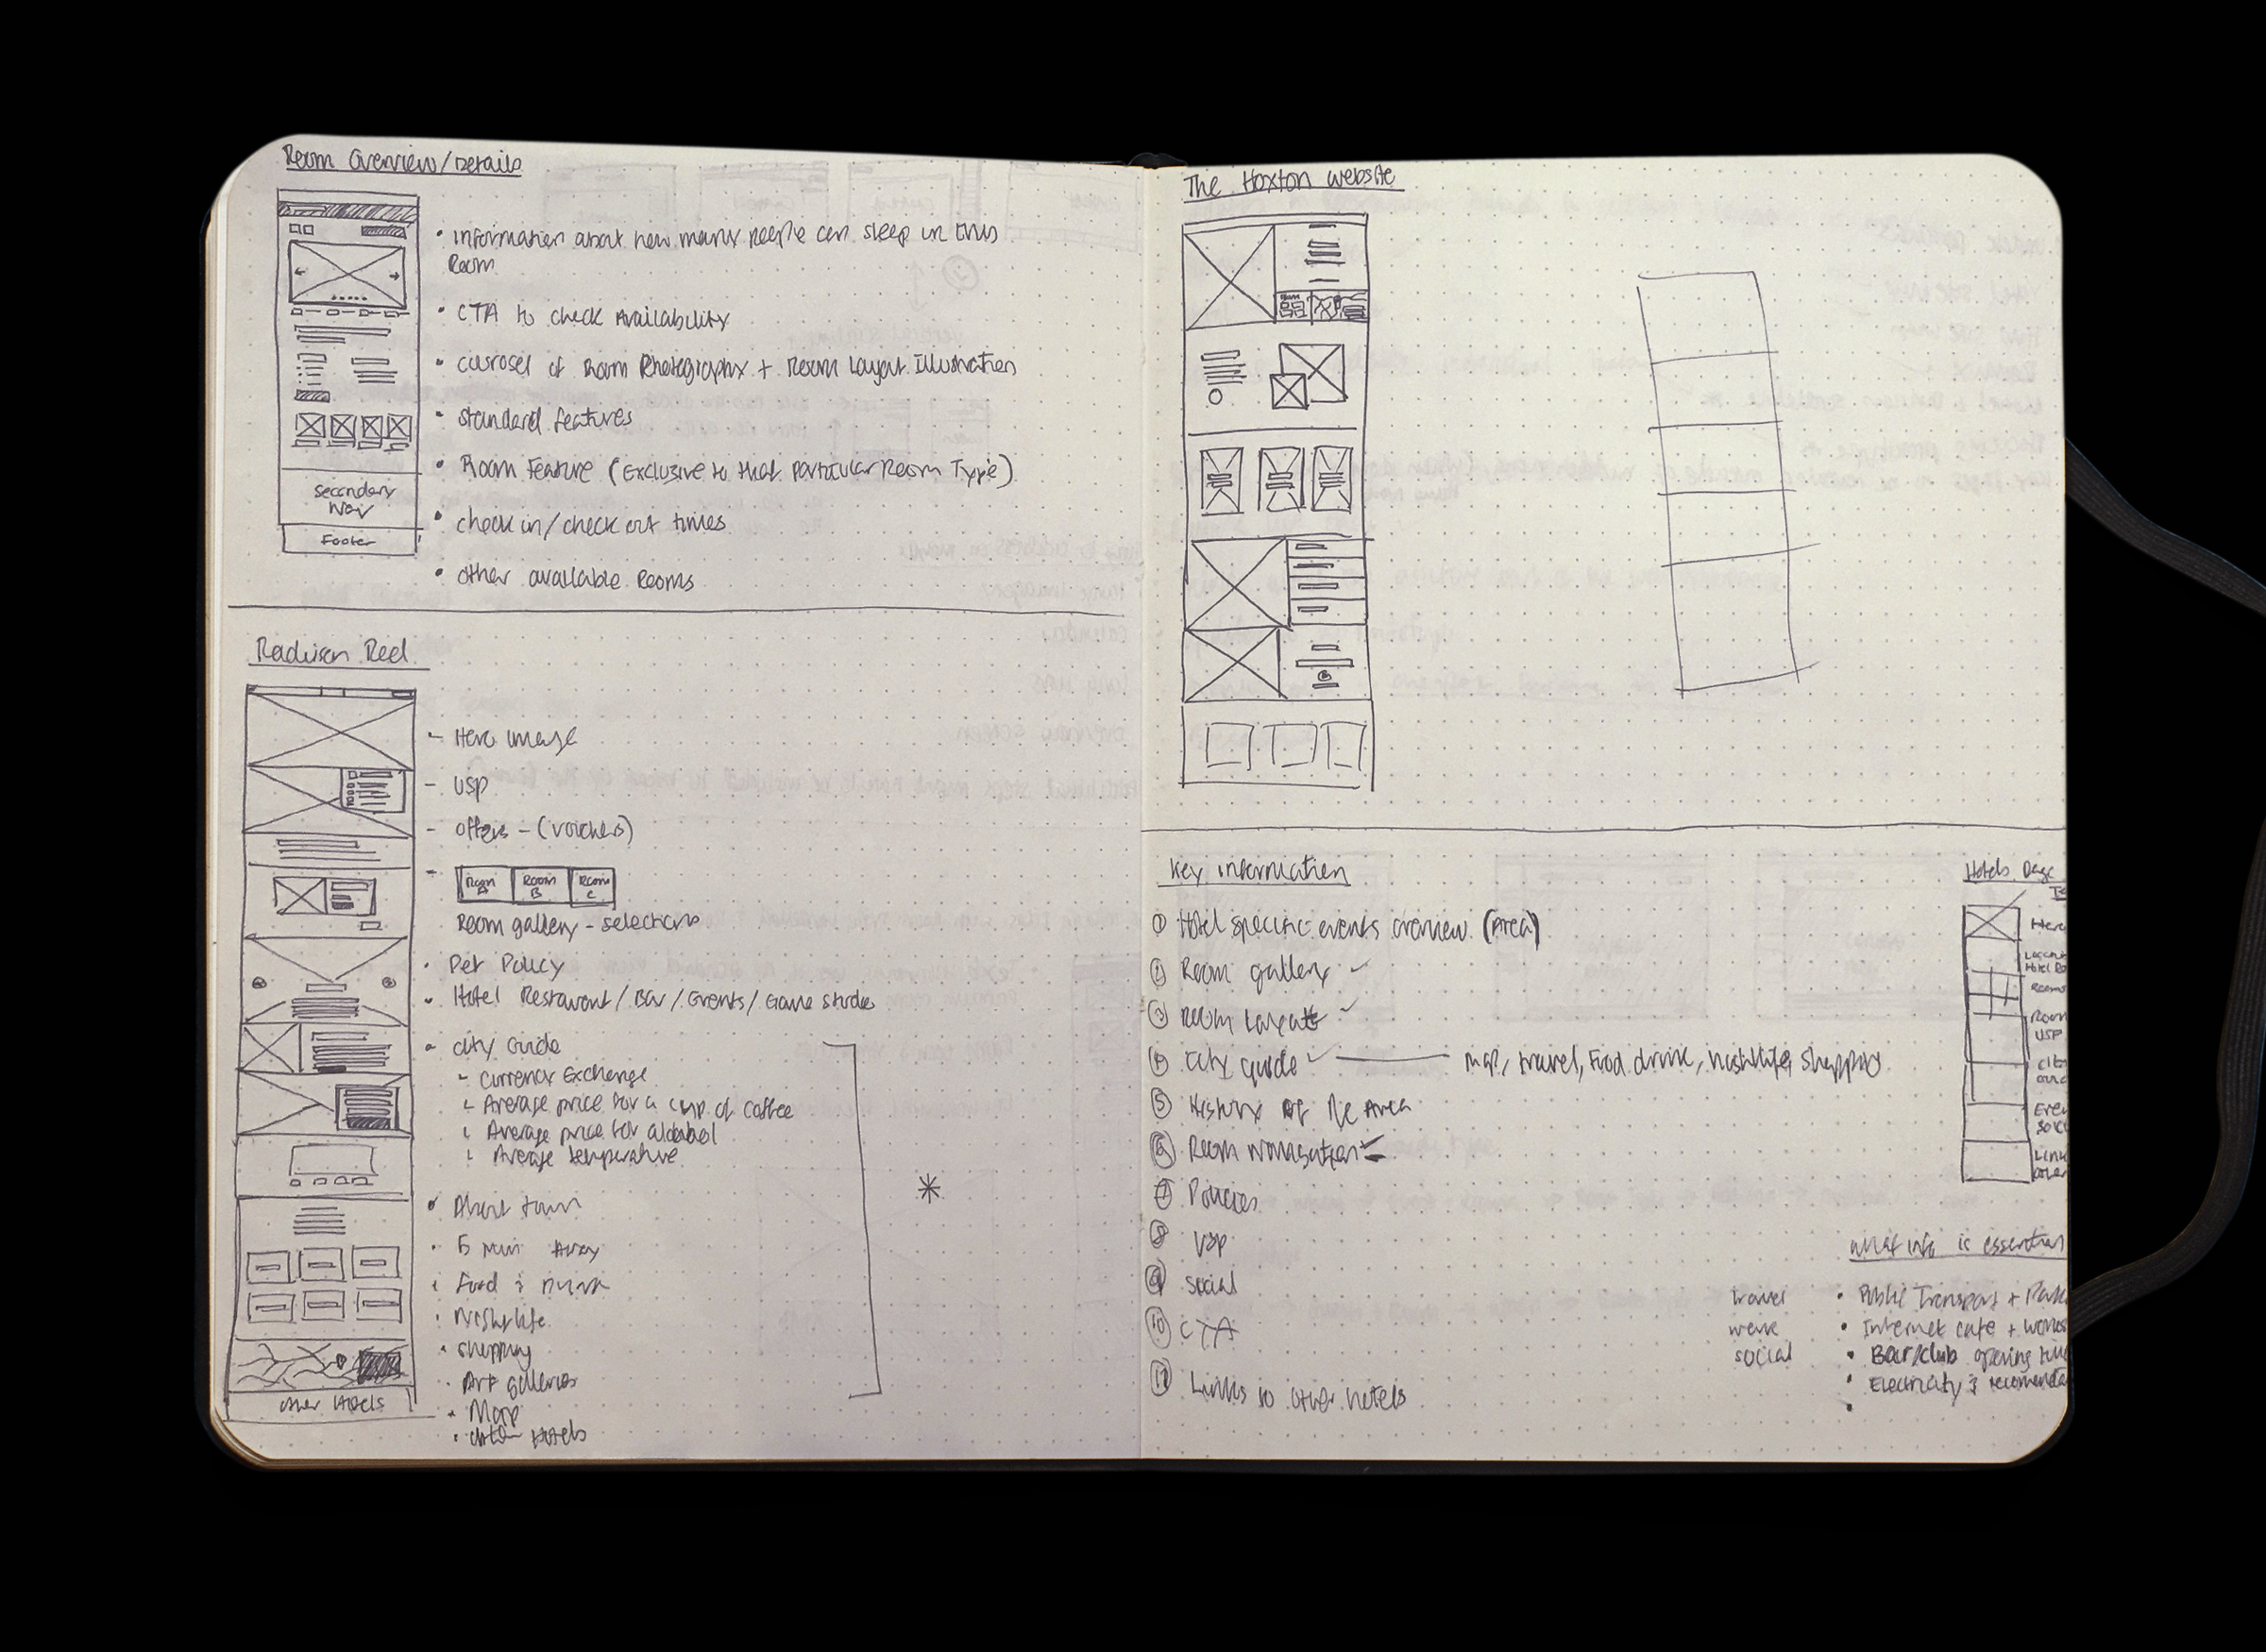 Room Overview/Details
• Information about how many people can sleep in this
Room
• CTA to check Availability
• Carosel of Room Photography + Room Layout Illustration
• Standard features
• Room Feature (Exclusive to that Particular Room Type)
• check in/check out times
• other available Rooms
Secondary
Nav
Footer
Radisson Red
- Hero image
- USP
- offers - (vouchers)
- Room A Room B Room C
Room gallery - selections
• Pet Policy
• Hotel Restaurant/Bar/Events/Game Studio
• City Guide
- Currency Exchange
- Average price for a cup of coffee
- Average price for alcohol
- Average temperature
*
• About town
• 5 Min Away
• Food & Drink
• Nightlife
• shopping
• Art galleries
• Map
• other Hotels
other Hotels
The Hoxton website
Key information
① Hotel specific events overview (Area)
② Room gallery ✓
③ Room Layouts ✓
④ City guide ✓ — map, travel, Food drink, nightlife, shopping
⑤ History of the Area
⑥ Room
⑦ Policies
⑧ USP
⑨ Social
⑩ CTA
⑪ Links to other hotels
Hotels Page
Hero
Rooms
Room
USP
what info is essential
travel • Public Transport +
work • Internet cafe +
social • Bar/club opening
• Electricity &
•